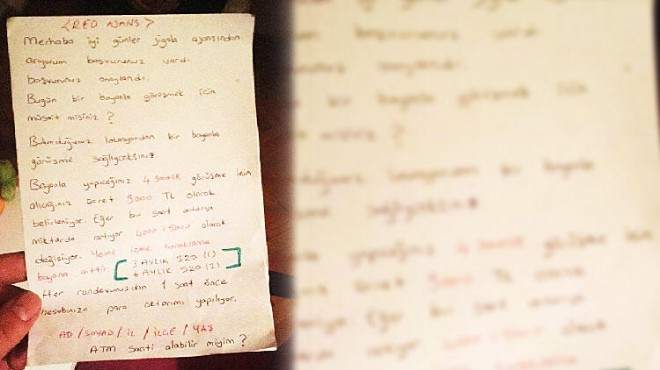 < RED AJANS >
Merhaba iyi günler jigolo ajansından
arıyorum başvurunuz vardı.
başvurunuz onaylandı.
Bugün bir bayanla görüşmek için
müsait misiniz ?
Bulunduğunuz lokasyondan bir bayanla
görüşme sağlıyacaksınız
Bayanla yapacağınız 4 saatlik görüşme için
alacağınız ücret 3000 TL olarak
belirleniyor. Eğer bu saat artarsa
miktarda artıyor 4000 / 5000 olarak
değişiyor. Yeme içme
bayana aittir.
3 AYLIK 320 (1)
6 AYLIK 520 (2)
Her randevunuzdan 1 saat önce
hesabınıza para aktarımı yapılıyor.
AD / SOYAD / İL / İLÇE / YAŞ
ATM saati alabilir miyim ?